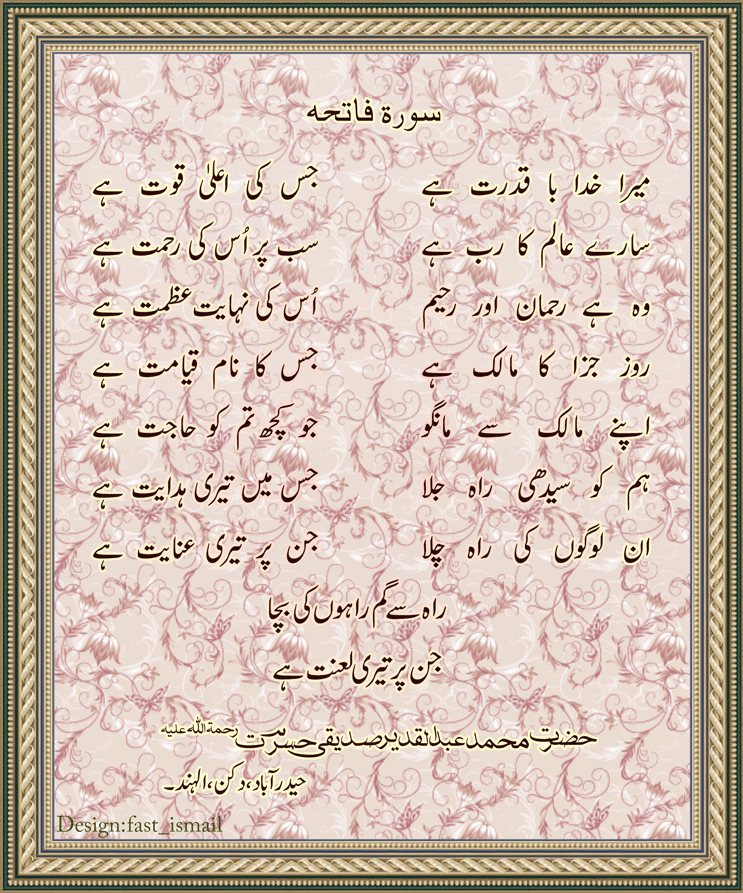 سورة فاتحه
میرا خدا با قدرت ہے جس کی اعلیٰ قوت ہے
سارے عالم کا رب ہے سب پر اُس کی رحمت ہے
وہ ہے رحمان اور رحیم اُس کی نہایت عظمت ہے
روز جزا کا مالک ہے جس کا نام قیامت ہے
اپنے مالک سے مانگو جو کچھ تم کو حاجت ہے
ہم کو سیدھی راہ جلا جس میں تیری ہدایت ہے
ان لوگوں کی راہ چلا جن پر تیری عنایت ہے
راہ سے گم راہوں کی بچا
جن پر تیری لعنت ہے
حضرت محمد عبدالقدیر صدیقی حسرت رحمة الله عليه
حیدرآباد، دکن، الہند۔
Design:fast_ismail